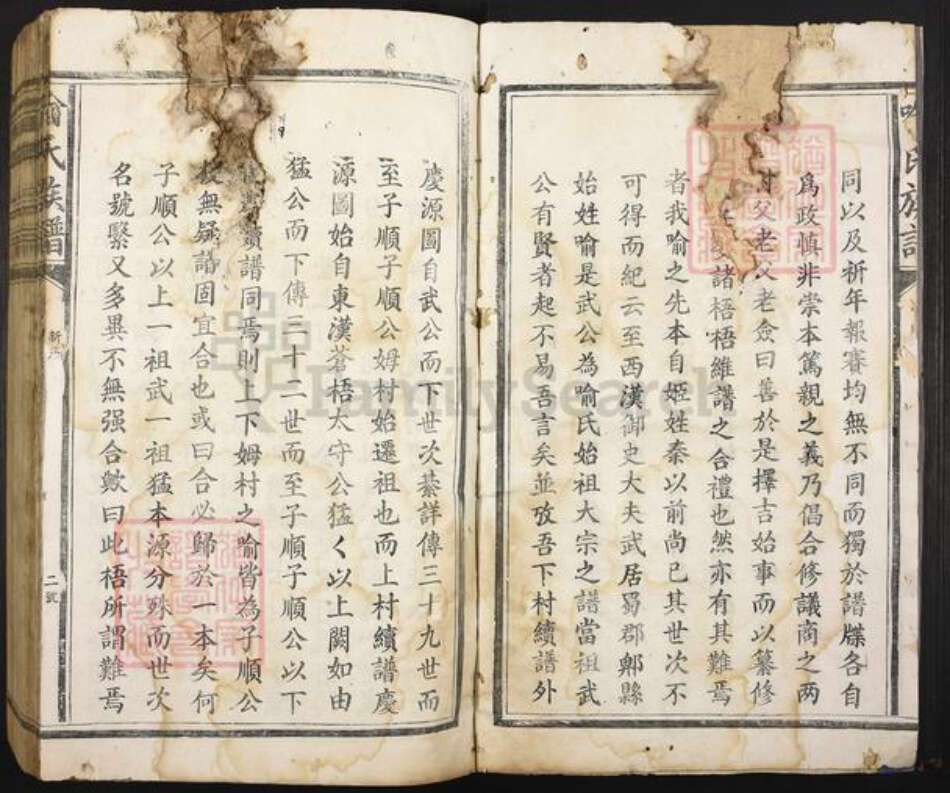 同以及祈年報賽均無不同而獨於譜牒各自
為政慎非崇本篤親之義乃倡合修議商之两
村父老父老僉曰善於是擇吉始事而以纂修
諸梧梧維譜之合禮也然亦有其難焉
者我喻之先本自姬姓秦以前尚已其世次不
可得而紀云至西漢御史大夫武居蜀郡郫縣
始姓喻是武公為喻氏始祖大宗之譜當祖武
公有賢者起不易吾言矣並攷吾下村續譜外
慶源圖自武公而下世次綦詳傳三十九世而
至子順子順公姆村始遷祖也而上村續譜慶
源圖始自東漢蒼梧太守公猛く以上闕如由
猛公而下傳三十二世而至子順子順公以下
續譜同焉則上下姆村之喻皆為子順公
後無疑譜固宜合也或曰合必歸於一本矣何
子順公以上一祖武一祖猛本源分殊而世次
名號緊又多異不無强合歟曰此梧所謂難焉
喻氏族譜
二號
氏族譜
FamilySearch